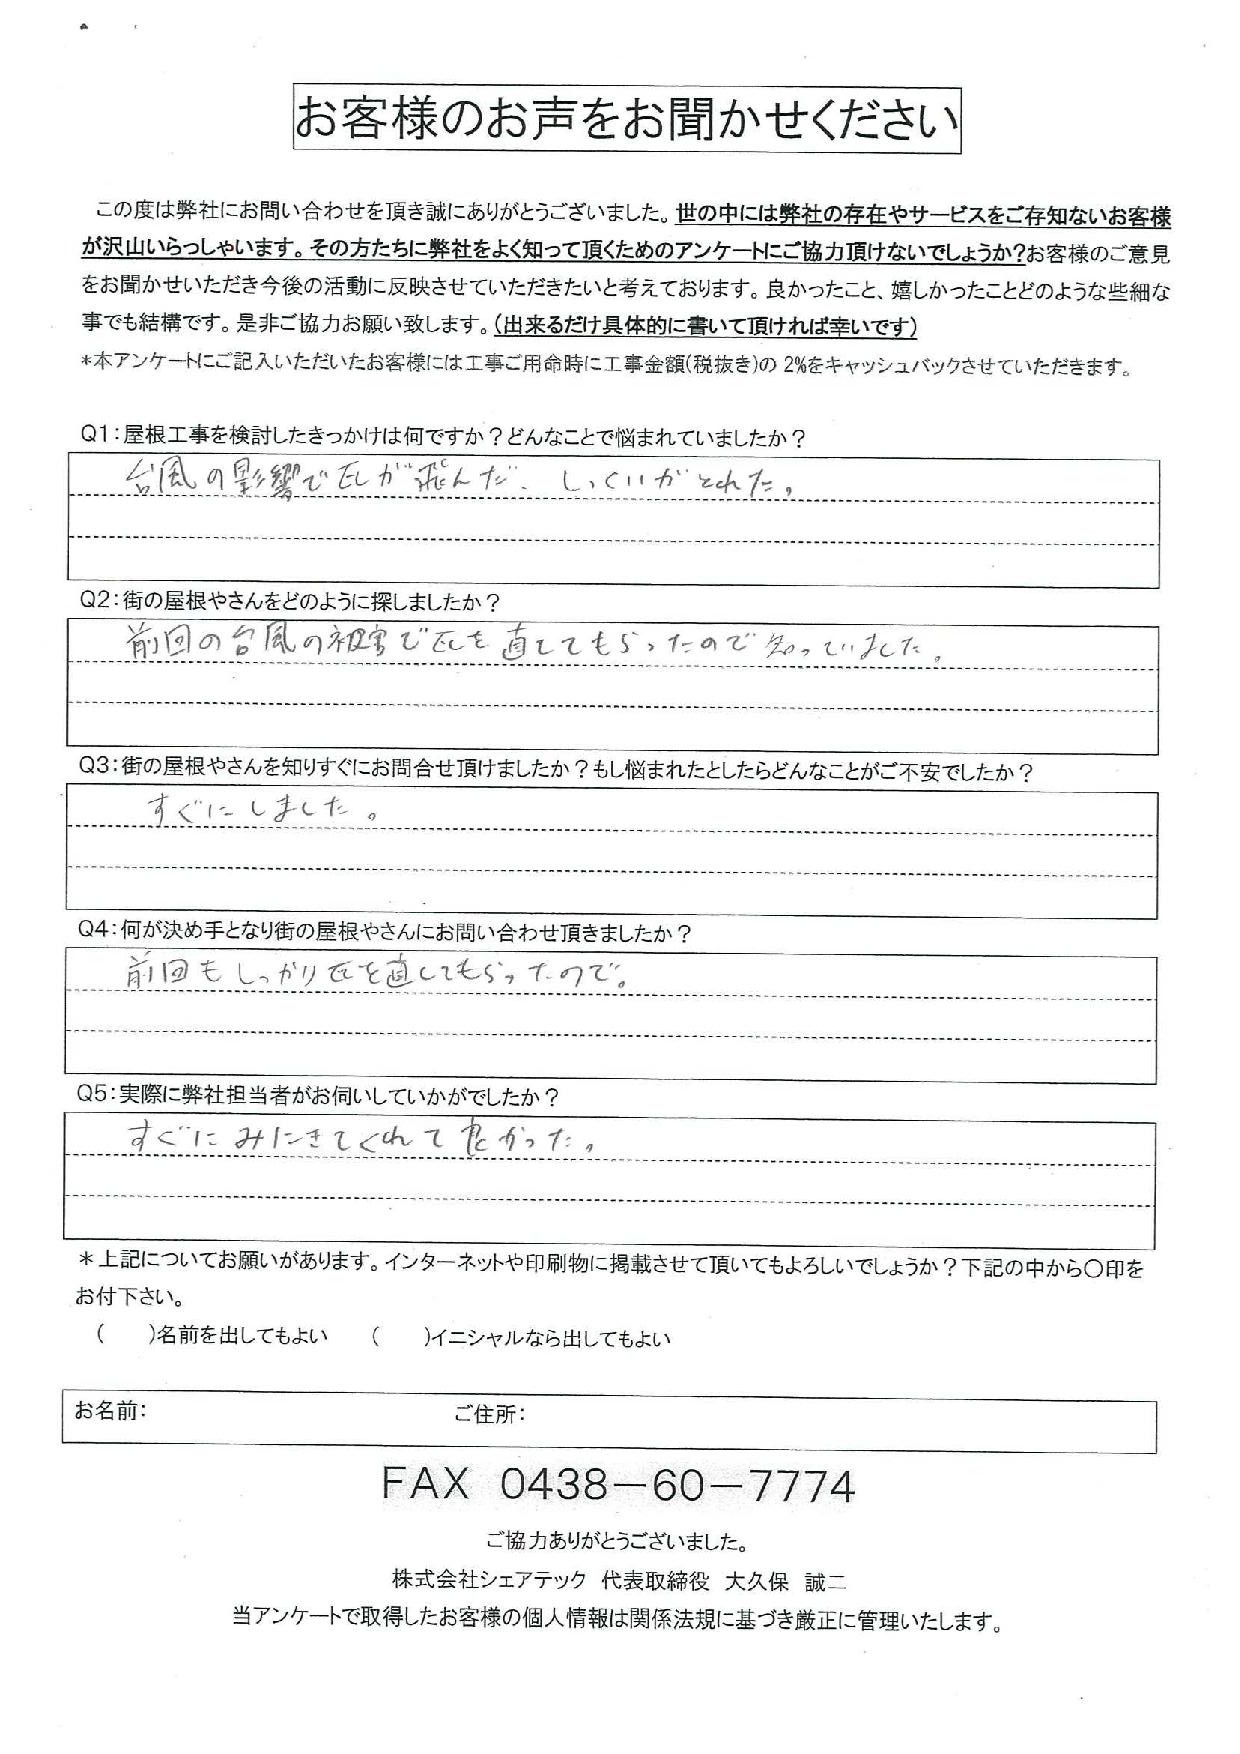 お客様のお声をお聞かせください
この度は弊社にお問い合わせを頂き誠にありがとうございました。世の中には弊社の存在やサービスをご存知ないお客様
が沢山いらっしゃいます。その方たちに弊社をよく知って頂くためのアンケートにご協力頂けないでしょうか?お客様のご意見
をお聞かせいただき今後の活動に反映させていただきたいと考えております。良かったこと、嬉しかったことどのような些細な
事でも結構です。是非ご協力お願い致します。(出来るだけ具体的に書いて頂ければ幸いです)
*本アンケートにご記入いただいたお客様には工事ご用命時に工事金額(税抜き)の 2%をキャッシュバックさせていただきます。
Q1:屋根工事を検討したきっかけは何ですか?どんなことで悩まれていましたか?
台風の影響で瓦が飛んだ、しっくいがとれた。
Q2:街の屋根やさんをどのように探しましたか?
前回の台風の被害で瓦を直してもらったので知っていました。
Q3:街の屋根やさんを知りすぐにお問合せ頂けましたか?もし悩まれたとしたらどんなことがご不安でしたか?
すぐにしました。
Q4:何が決め手となり街の屋根やさんにお問い合わせ頂きましたか?
前回もしっかり瓦を直してもらったので。
Q5:実際に弊社担当者がお伺いしていかがでしたか?
すぐにみにきてくれて良かった。
*上記についてお願いがあります。インターネットや印刷物に掲載させて頂いてもよろしいでしょうか?下記の中から〇印を
お付下さい。
( )名前を出してもよい ( )イニシャルなら出してもよい
お名前: ご住所:
FAX 0438-60-7774
ご協力ありがとうございました。
株式会社シェアテック 代表取締役 大久保 誠二
当アンケートで取得したお客様の個人情報は関係法規に基づき厳正に管理いたします。